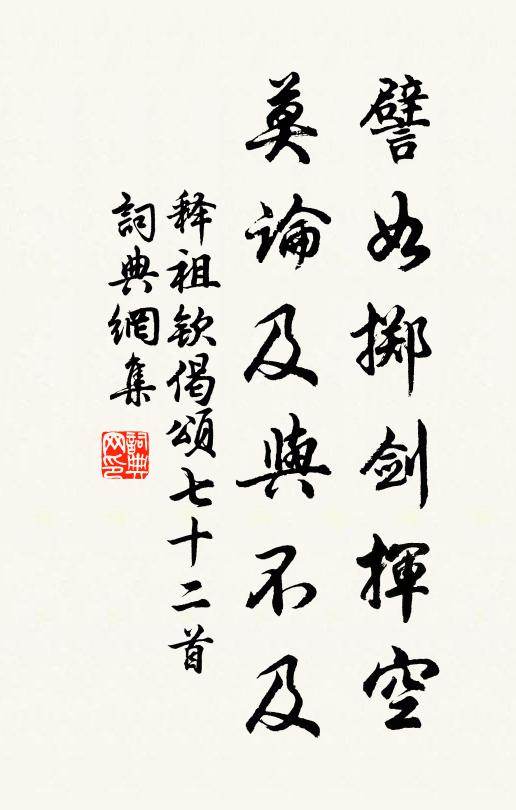 譬如掷剑揮空
莫論及與不及
释祖钦偈頌七十二首
詞典網集
詞典网印